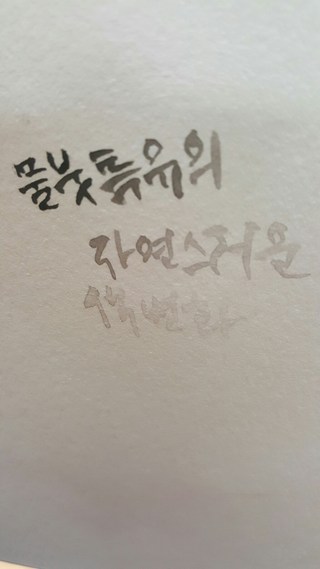 물붓특유의
자연스러운
색변화